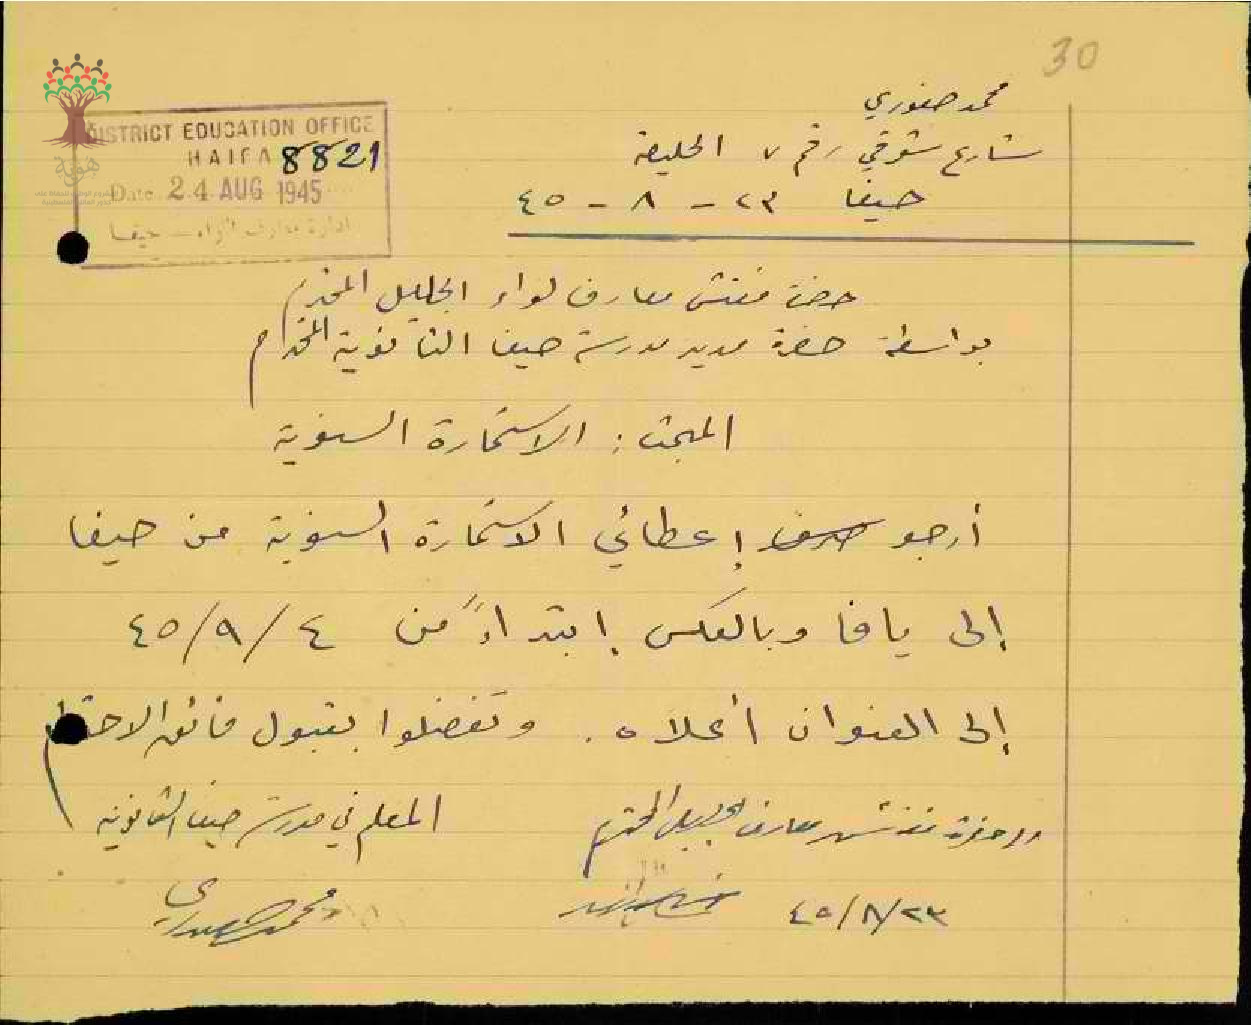 30
محمد صفوري
شارع شوقي رقم ٧ الحليصة
حيفا ٢٣ - ٨ - ٤٥
DISTRICT EDUCATION OFFICE
HAIFA 8821
Date 24 AUG 1945
ادارة معارف اللواء - حيفا
هوية
حضرة مفتش معارف لواء الجليل المحترم
بواسطة حضرة مدير مدرسة حيفا الثانوية المحترم
المبحث : الاستمارة السنوية
أرجو إعطائي الاستمارة السنوية من حيفا
إلى يافا وبالعكس إبتداءً من ٤/٩/٤٥
إلى العنوان أعلاه . وتفضلوا بقبول فائق الاحترام
المعلم في مدرسة حيفا الثانوية
محمد صفوري
حضرة مفتش معارف الجليل المحترم
٢٣/٨/٤٥